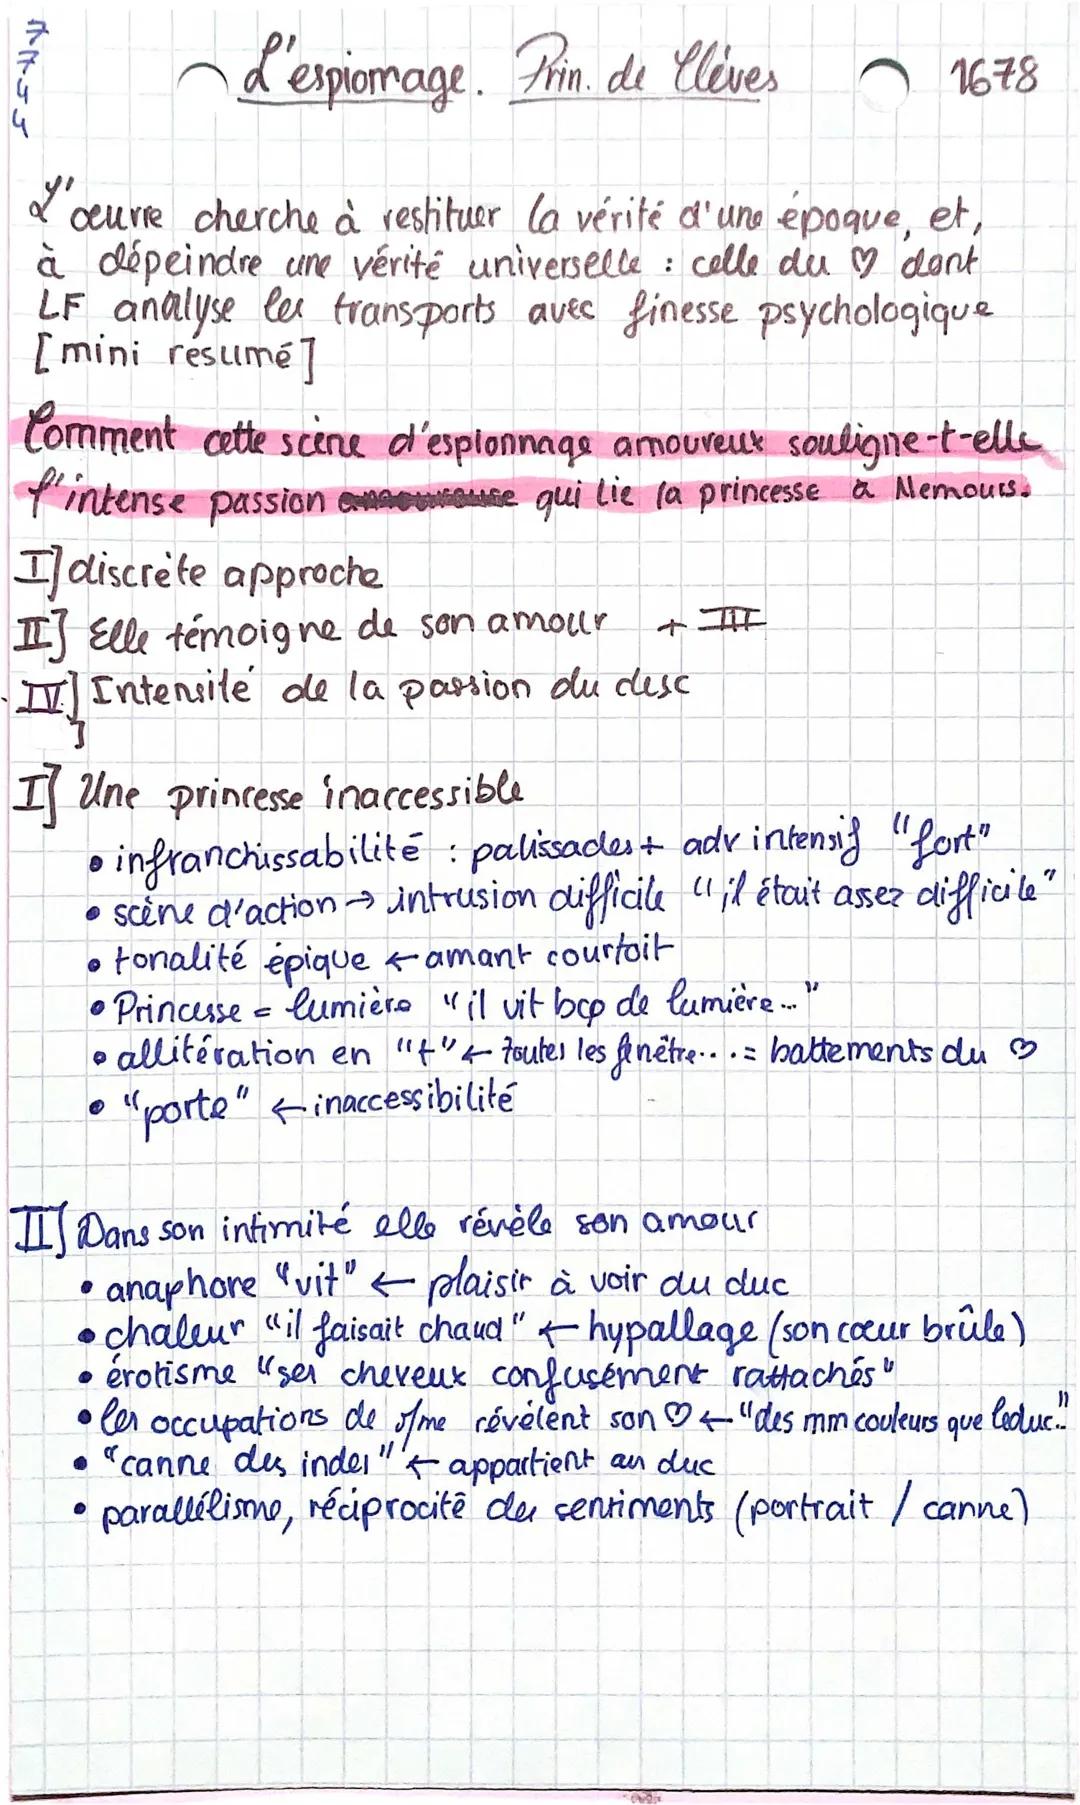 7744
L'espionnage. Prin. de Clèves 1678
L'œuvre cherche à restituer la vérité d'une époque, et,
à dépeindre une vérité universelle : celle du ♡ dont
LF analyse les transports avec finesse psychologique
[mini résumé]
Comment cette scène d'espionnage amoureux souligne-t-elle
l'intense passion qui lie la princesse à Nemours.
I] discrète approche
II] Elle témoigne de son amour + III
IV] Intensité de la passion du desc
]
I] Une princesse inaccessible
• infranchissabilité : palissades + adv intensif "fort"
• scène d'action → intrusion difficile "il était assez difficile"
• tonalité épique ← amant courtoit
• Princesse = lumière "il vit bcp de lumière..."
• allitération en "t" ← toutes les fenêtre... = battements du ♡
• "porte" ← inaccessibilité
II] Dans son intimité elle révèle son amour
• anaphore "vit" ← plaisir à voir du duc
• chaleur "il faisait chaud" ← hypallage (son cœur brûle)
• érotisme "ses cheveux confusément rattachés"
• les occupations de Mme révèlent son ♡ ← "des mm couleurs que le duc.."
• "canne des indes" ← appartient au duc
• parallélisme, réciprocité des sentiments (portrait / canne)